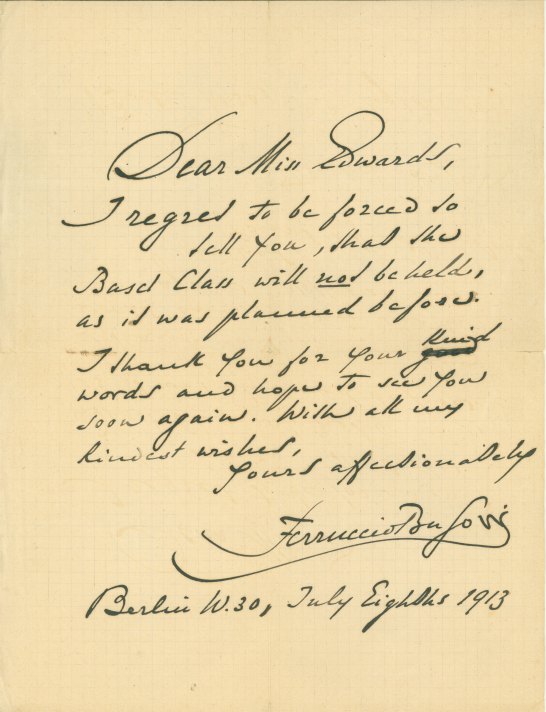 Dear Miss Edwards,
I regret to be forced to
tell You, that the
Basel Class will not be held,
as it was planned before.
I thank You for Your kind
words and hope to see You
soon again. With all my
kindest wishes,
Yours affectionately
Ferruccio Busoni
Berlin W.30, July Eighths 1913